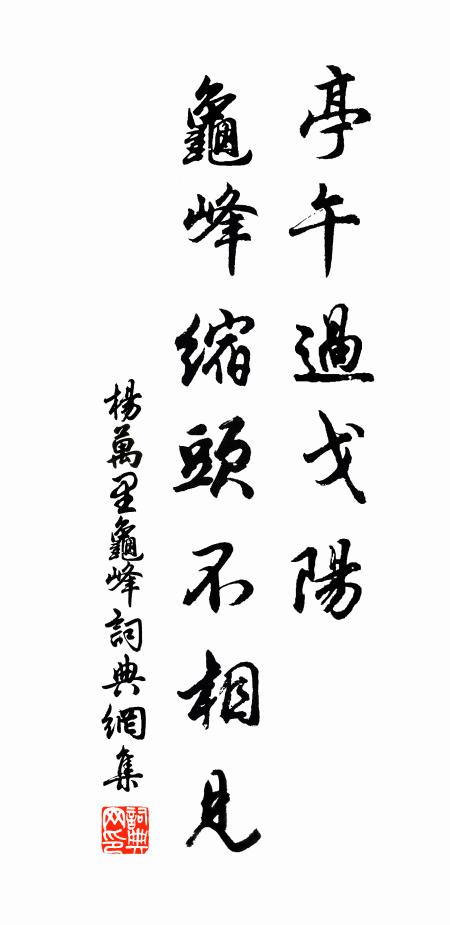 亭午過戈陽
龜峰縮頭不相見
楊萬里龜峰詞典網集
詞典网印